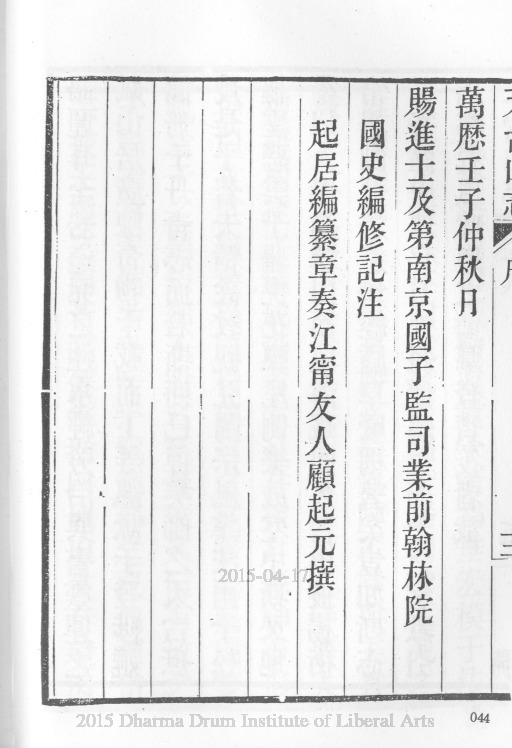 萬厯壬子仲秋月
賜進士及第南京國子監司業前翰林院
國史編修記注
起居編纂章奏江甯友人顧起元撰
2015-04-17
2015 Dharma Drum Institute of Liberal Arts
044